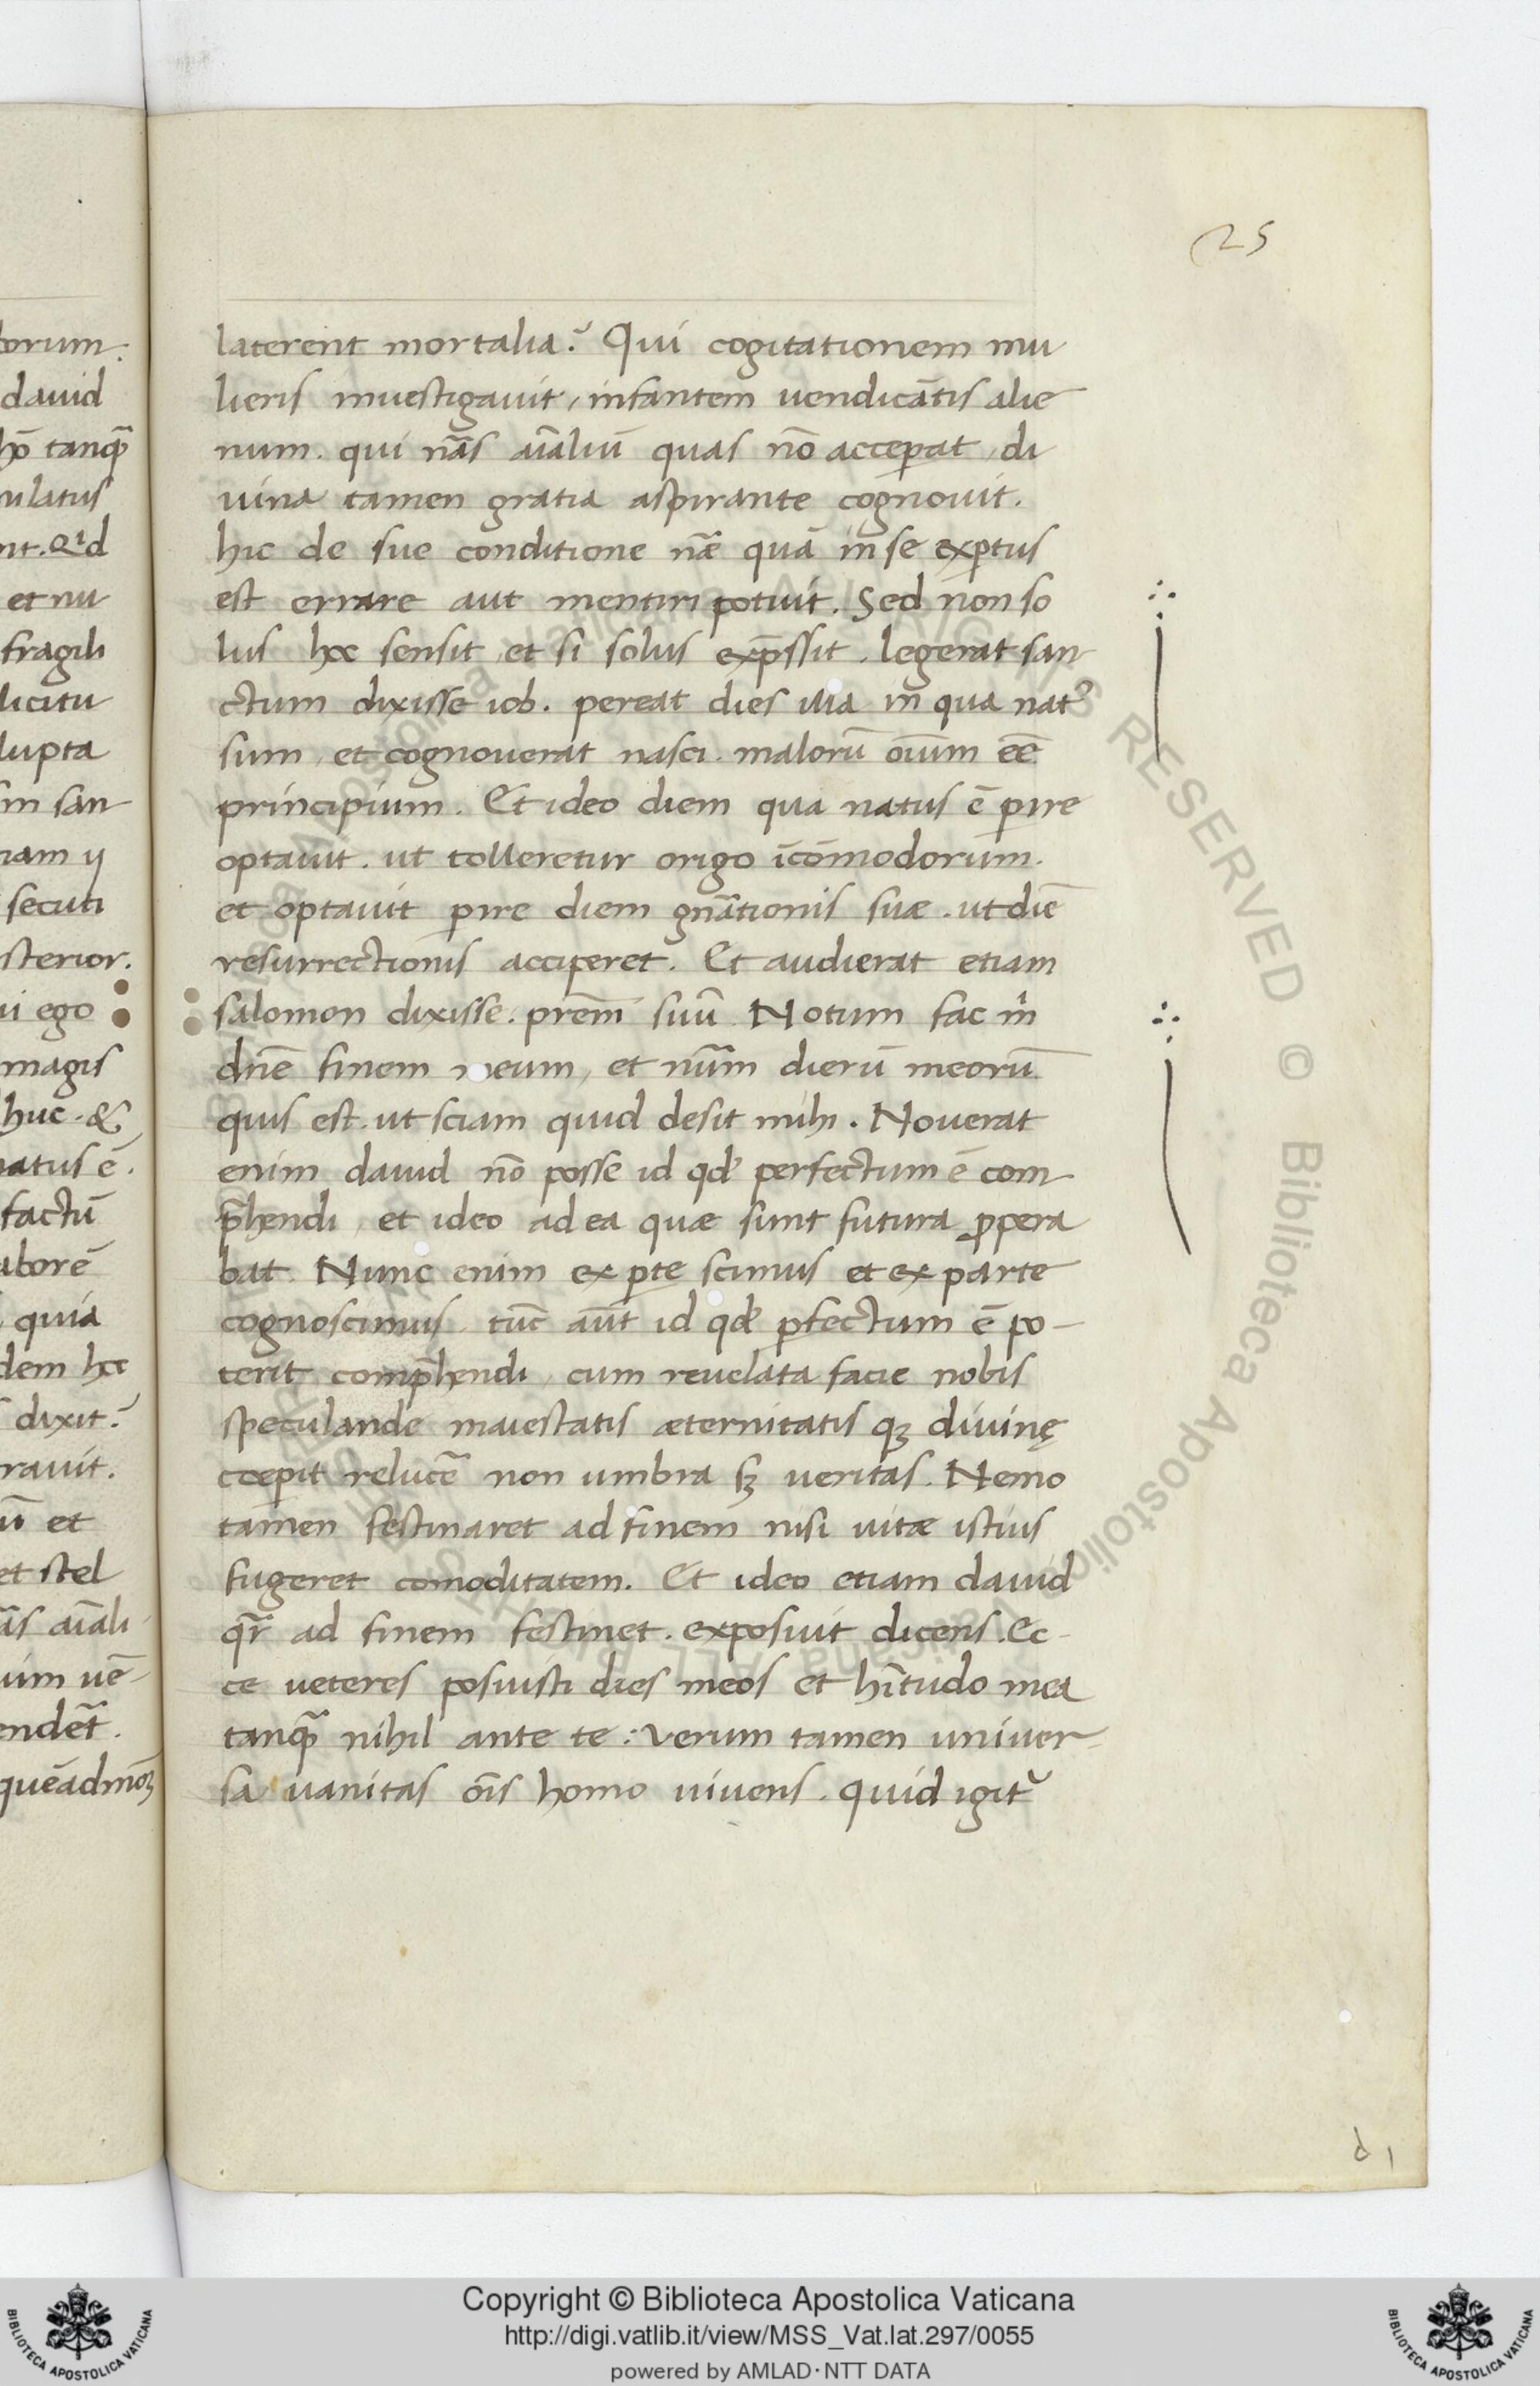 25
laterent mortalia? Qui cogitationem mu
lieris inuestigauit, infantem uendicātis alie
num. qui nãs aĩaliũ quas nõ acceperat, di
uina tamen gratia aspirante cognouit.
hic de sue conditione nãe quã in se exp̱tus
est errare aut mentiri potuit. Sed non so
lus hoc sensit, et si solus exp̃ssit. legerat san
ctum dixisse iob. pereat dies illa in qua natꝰ
sum, et cognouerat nasci. malorũ oĩum eẽ
principium. Et ideo diem qua natus ẽ ꝑire
optauit. ut tolleretur origo ĩcõmodorum.
et optauit ꝑire diem gñationis suæ. ut diẽ
resurrectionis acciperet. Et audierat etiam
salomon dixisse. prẽm suũ. Notum fac m̃
dñe finem meum, et nũm dierũ meorũ
quis est. ut sciam quid desit mihi. Nouerat
enim dauid nõ posse id qđ perfectum ẽ com
p̃hendi, et ideo ad ea quæ sunt futura ꝓpera
bat. Nunc enim ex ꝑte scimus et ex parte
cognoscimus. tũc aũt id qđ ꝑfectum ẽ po-
terit comp̃hendi, cum reuelata facie nobis
speculande maiestatis æternitatis qꝫ diuinę
cœpit relucẽ non umbra sꝫ ueritas. Nemo
tamen festinaret ad finem nisi uitæ istius
fugeret comoditatem. Et ideo etiam dauid
qr̃ ad finem festinet. exposuit dicens. Ec-
ce ueteres posuisti dies meos et hĩtudo mea
tanqꝫ̃ nihil ante te: Verum tamen uniuer-
sa uanitas oĩs homo uiuens. quid igit᷑
d 1
orum.
dauid
hõ tanqꝫ̃
ulatus
nt. Qͥd
et nu
fragili
licitu
lupta
m san
nam ij
secuti
sterior.
ui ego
magis
huc. &
natus ẽ.
factũ
aborẽ
quia
dem hoc
dixit?
rauit.
ũ et
et stel
ãs aĩali
um uẽ-
endet᷑.
quẽadmoꝫ
Copyright © Biblioteca Apostolica Vaticana
http://digi.vatlib.it/view/MSS_Vat.lat.297/0055
powered by AMLAD·NTT DATA
BIBLIOTECA APOSTOLICA VATICANA
BIBLIOTECA APOSTOLICA VATICANA